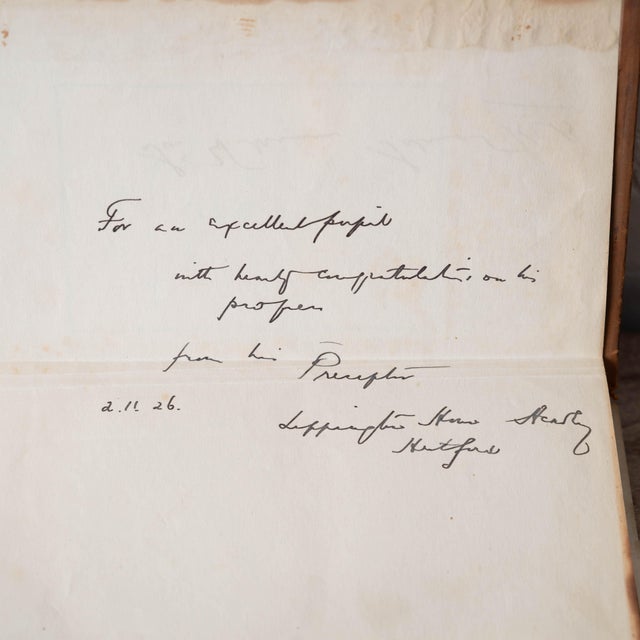 For an excellent pupil
with hearty congratulations on his
progress
from his Preceptor
2.11.26.
House
Hertford